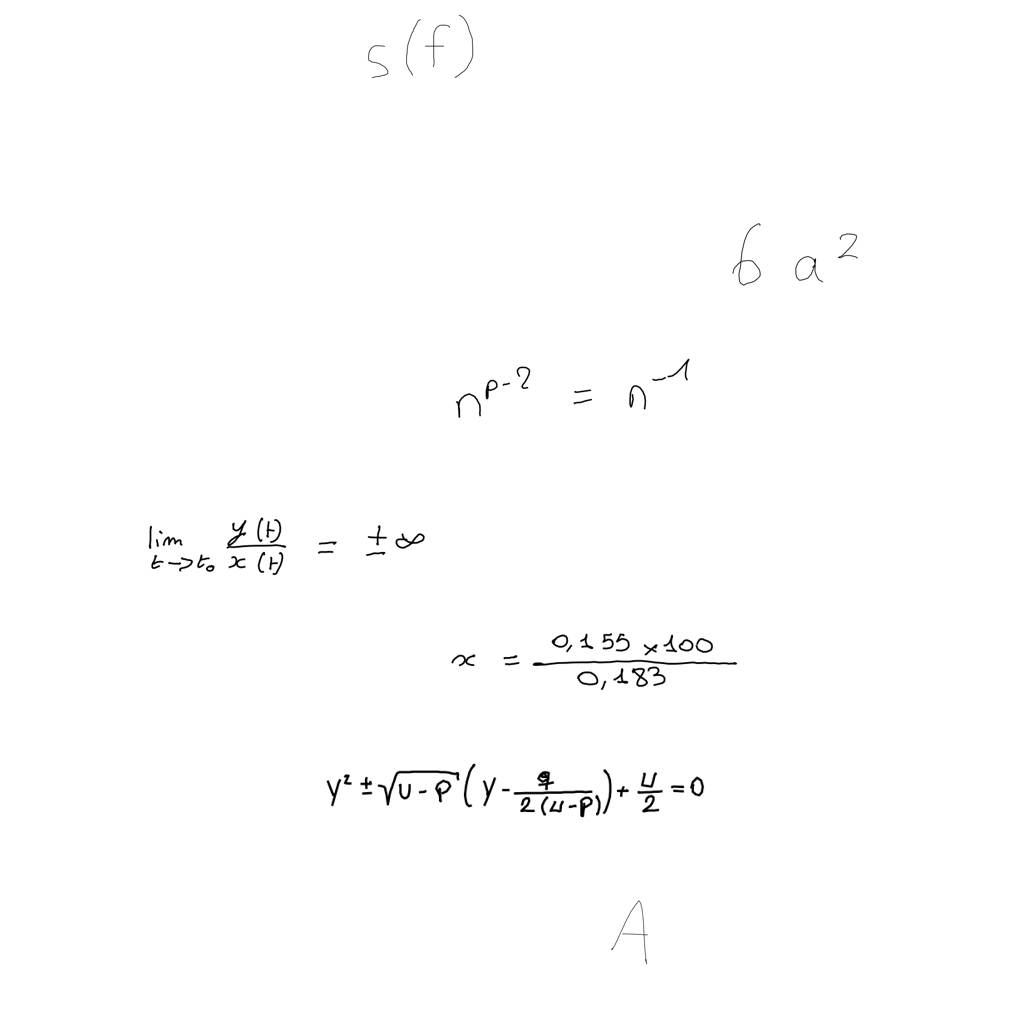 s(f)
6 a^2
n^{p-2} = n^{-1}
\lim_{t \to t_0} \frac{y(t)}{x(t)} = \pm \infty
x = \frac{0,155 \times 100}{0,183}
y^2 \pm \sqrt{u-p} \left( y - \frac{q}{2(u-p)} \right) + \frac{u}{2} = 0
A